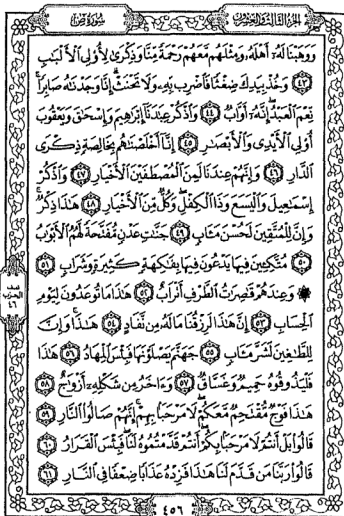 الجزء الثالث والعشرون سورة ص
ووهبنا له أهله ومثلهم معهم رحمة منا وذكرى لأولي الألباب
٤٣ وخذ بيدك ضغثا فاضرب به ولا تحنث إنا وجدناه صابرا
نعم العبد إنه أواب ٤٤ واذكر عبادنا إبراهيم وإسحق ويعقوب
أولي الأيدي والأبصار ٤٥ إنا أخلصناهم بخالصة ذكرى
الدار ٤٦ وإنهم عندنا لمن المصطفين الأخيار ٤٧ واذكر
إسماعيل واليسع وذا الكفل وكل من الأخيار ٤٨ هذا ذكر
وإن للمتقين لحسن مآب ٤٩ جنات عدن مفتحة لهم الأبواب
٥٠ متكئين فيها يدعون فيها بفاكهة كثيرة وشراب ٥١
۞ وعندهم قاصرات الطرف أتراب ٥٢ هذا ما توعدون ليوم
الحساب ٥٣ إن هذا لرزقنا ما له من نفاد ٥٤ هذا وإن
للطاغين لشر مآب ٥٥ جهنم يصلونها فبئس المهاد ٥٦ هذا
فليذوقوه حميم وغساق ٥٧ وآخر من شكله أزواج ٥٨
هذا فوج مقتحم معكم لا مرحبا بهم إنهم صالوا النار ٥٩
قالوا بل أنتم لا مرحبا بكم أنتم قدمتموه لنا فبئس القرار ٦٠
قالوا ربنا من قدم لنا هذا فزده عذابا ضعفا في النار ٦١
٤٥٦